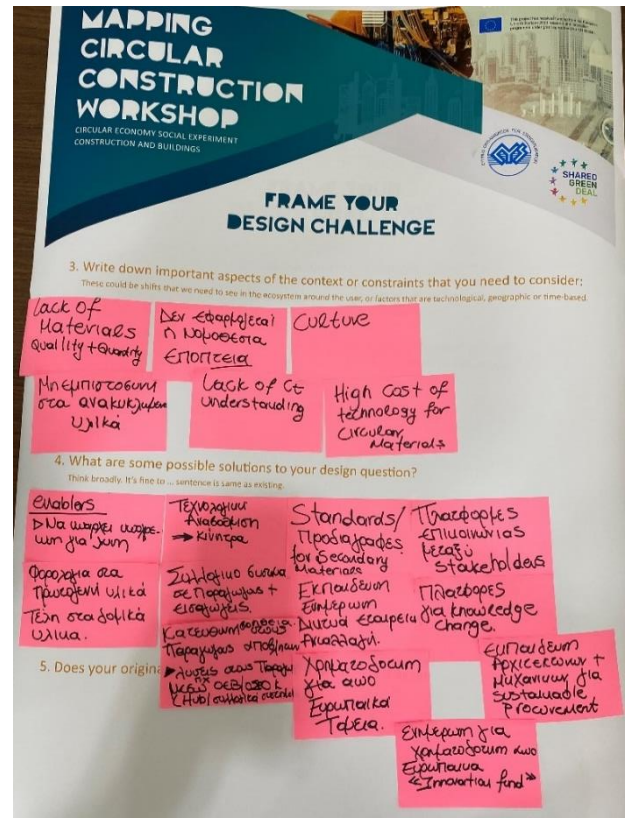 MAPPING
CIRCULAR
CONSTRUCTION
WORKSHOP
CIRCULAR ECONOMY SOCIAL EXPERIMENT
CONSTRUCTION AND BUILDINGS
SHARED
GREEN
DEAL
FRAME YOUR
DESIGN CHALLENGE
3. Write down important aspects of the context or constraints that you need to consider:
These could be shifts that we need to see in the ecosystem around the user, or factors that are technological, geographic or time-based.
Lack of
Materials
Quality + Quantity
Δεν εφαρμόζεται
η Νομοθεσία
Εποπτεία
Culture
Μη εμπιστοσύνη
στα ανακυκλωμένα
υλικά
Lack of CE
Understanding
High Cost of
technology for
Circular
Materials
4. What are some possible solutions to your design question?
Think broadly. It's fine to ... sentence is same as existing.
enablers
Να υπάρχει
για
Τεχνολογική
Αναβάθμιση
→ κίνητρα
Standards/
Προδιαγραφές
for Secondary
Materials
Πλατφόρμες
επικοινωνίας
μεταξύ
Stakeholders
Φορολογία στα
πρωτογενή υλικά
Τέλη στα δομικά
υλικά.
Συλλογικό
σε παραγωγούς +
εισαγωγείς.
Εκπαίδευση
Ενημέρωση
Δίκτυα εταιρειών
Ανταλλαγή.
Πλατφόρες
για knowledge
change.
στους
Παραγωγούς αποβλήτων
λύσεις στους
μέσω ΟΕΒ/
Χρηματοδότηση
για από
Ευρωπαϊκά
Ταμεία.
Εκπαίδευση
Αρχιτεκτόνων +
Μηχανικών για
Sustainable
Procurement
5. Does your origina
Ενημέρωση για
χρηματοδότηση από
Ευρωπαϊκά
«Innovation fund»